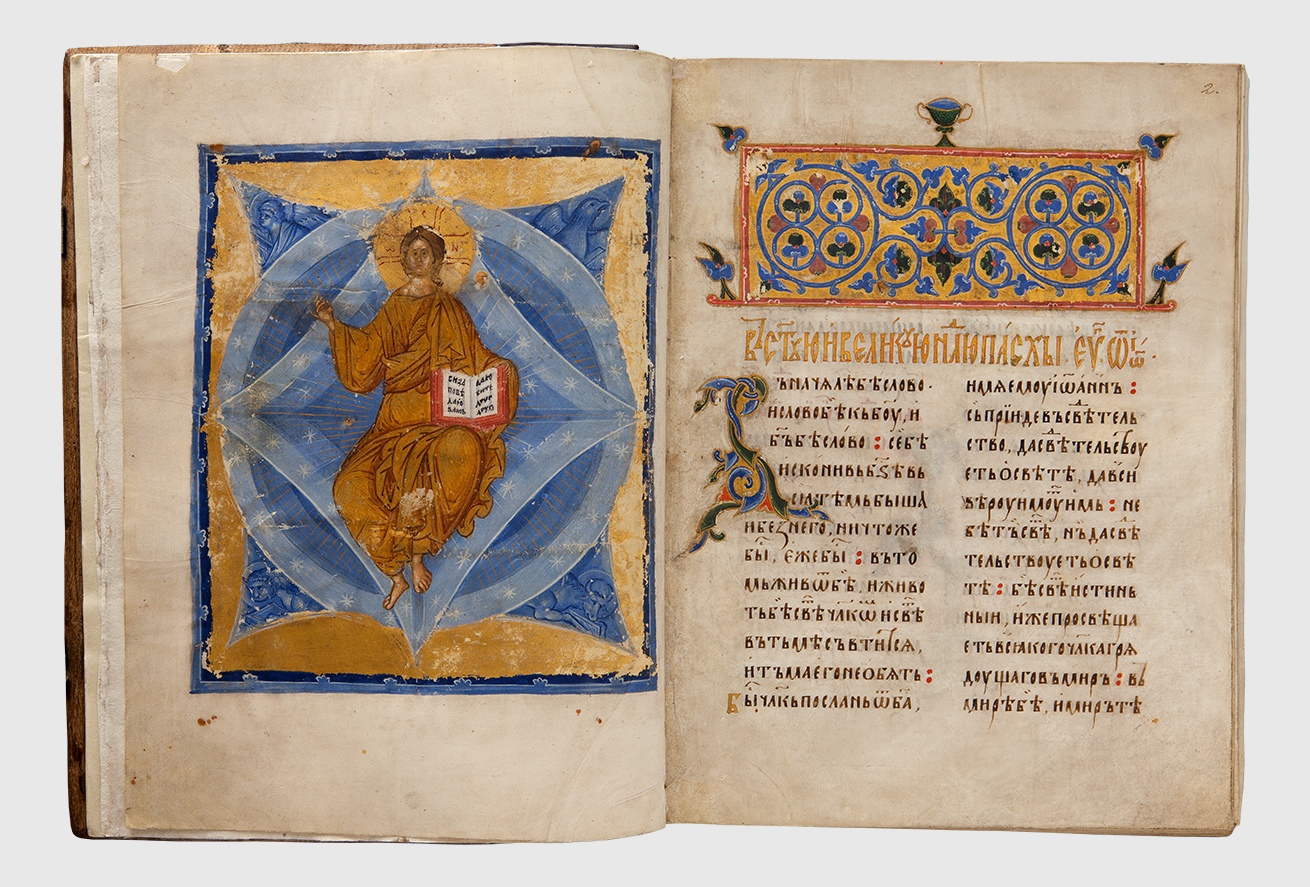 2.
въ ст҃ꙋю и великꙋю нед҃лю пасхы еѵ҃ ѿ іѡ҃
Ъ начѧлѣ бѣ слово ·
и слово бѣ къ боу, и
б҃ъ бѣ слово : се бѣ
искони въ б҃ѕѣ въ
сꙗ тѣмь бышѧ
и беꙁ него, ничтоже
бы҃, еже бы҃ : въ то
мь живѿ бѣ, и живо
ть бѣ свѣ҃ чл҃кѡ҃ и свѣ҃
въ тьмѣ съвтитсѧ,
и тъма его не обѧть :
Бы҃ чл҃къ посланъ ѿ б҃а,
имѧ емоу іѡ҃аннъ :
съ прїиде въ съвѣтель
ство, да свѣтельствоу
еть о свѣтѣ, да вси
вѣроу имоуть имь : не
бѣ тъ свѣ҃, нъ да свѣ
тельствоуеть о свѣ
тѣ : бѣ свѣ҃ истинь
ныи, иже просвѣща
еть всꙗкого чл҃ка грѧ
доущаго въ миръ : въ
мирѣ бѣ, и миръ тѣ